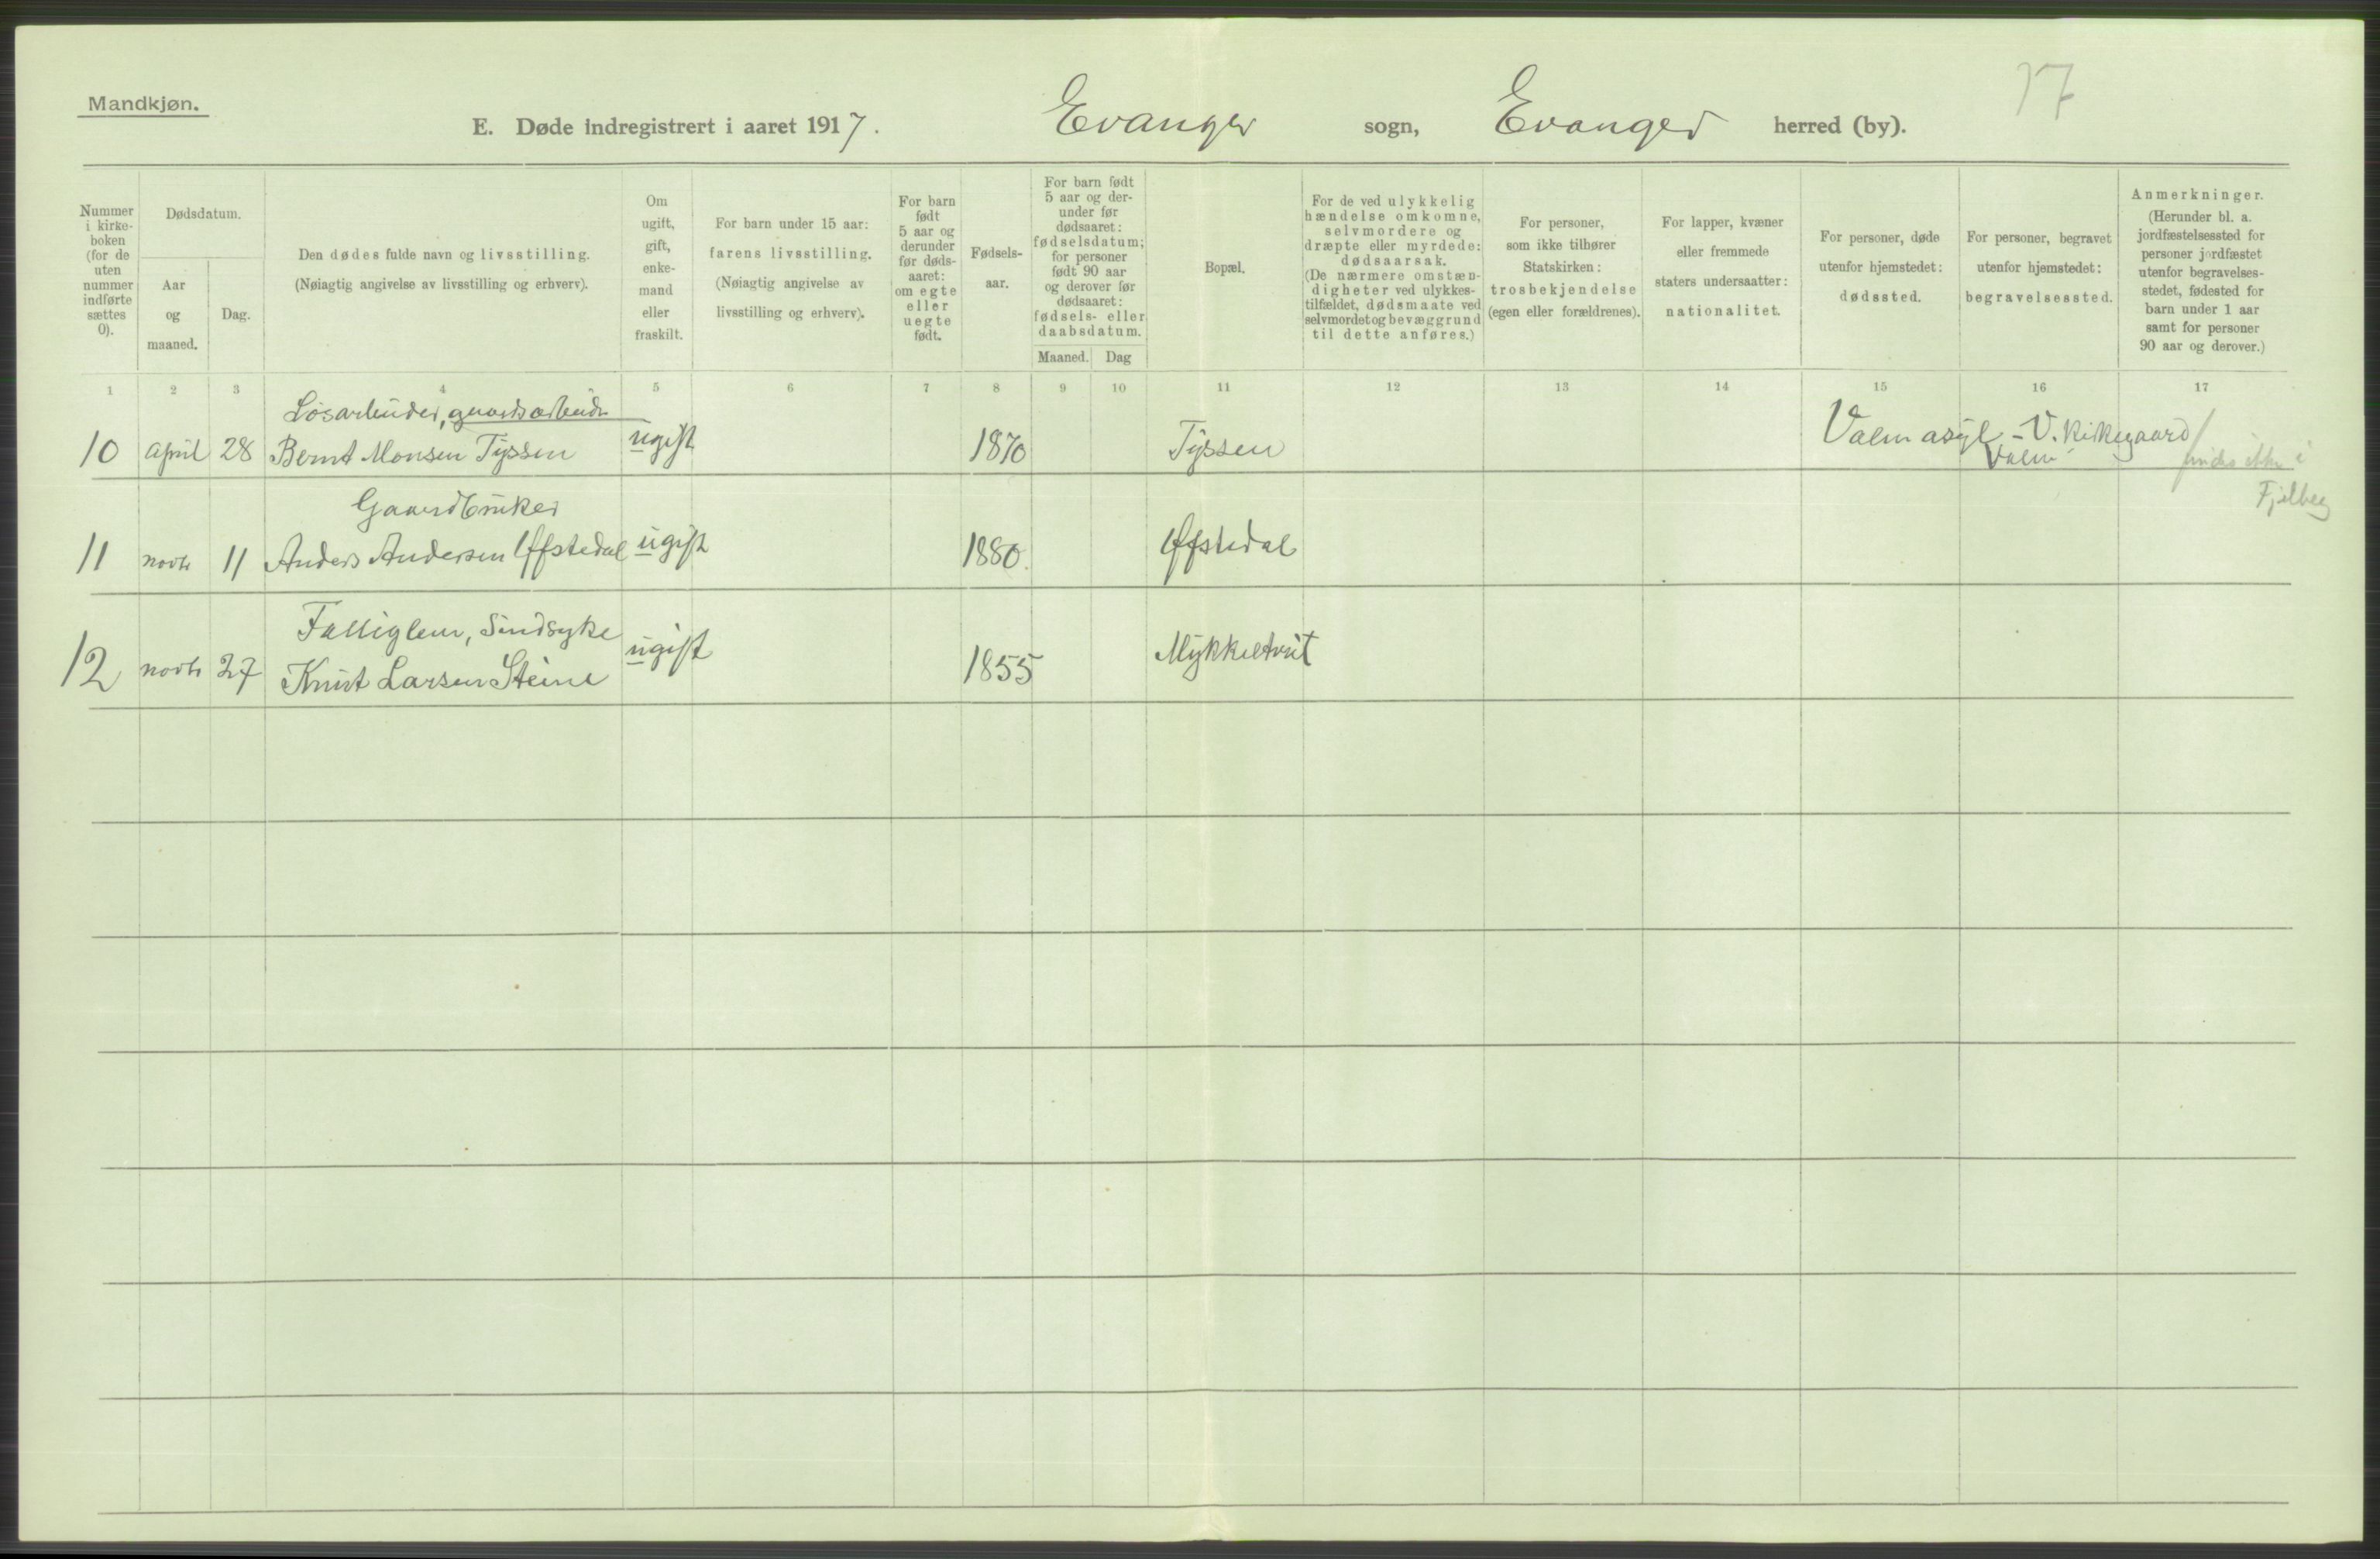 Mandkjøn.
E. Døde indregistrert i aaret 1917. Evanger sogn, Evanger herred (by).
17
Nummer i kirke-boken (for de uten nummer indførte sættes 0).
Dødsdatum.
Aar og maaned.
Dag.
Den dødes fulde navn og livsstilling.
(Nøiagtig angivelse av livsstilling og erhverv).
Om ugift, gift, enke-mand eller fraskilt.
For barn under 15 aar:
farens livsstilling.
(Nøiagtig angivelse av livsstilling og erhverv).
For barn født 5 aar og derunder før døds-aaret: om egte eller uegte født.
Fødsels-aar.
For barn født 5 aar og der-under før dødsaaret: fødselsdatum; for personer født 90 aar og derover før dødsaaret: fødsels- eller daabsdatum.
Maaned. Dag
Bopæl.
For de ved ulykkelig hændelse omkomne, selvmordere og dræpte eller myrdede: dødsaarsak.
(De nærmere omstæn-digheter ved ulykkes-tilfældet, dødsmaate ved selvmordet og bevæggrund til dette anføres.)
For personer, som ikke tilhører Statskirken: trosbekjendelse (egen eller forældrenes).
For lapper, kvæner eller fremmede staters undersaatter: nationalitet.
For personer, døde utenfor hjemstedet: dødssted.
For personer, begravet utenfor hjemstedet: begravelsessted.
Anmerkninger.
(Herunder bl. a. jordfæstelsessted for personer jordfæstet utenfor begravelses-stedet, fødested for barn under 1 aar samt for personer 90 aar og derover.)
1 2 3 4 5 6 7 8 9 10 11 12 13 14 15 16 17
Løsarbeider, gaardsarbeider
10 april 28 Bernt Monsen Tyssen ugift 1870 Tyssen Valen asyl - V. kirkegaard
Valen
findes ikke i
Fjelberg
Gaardbruker
11 novbr 11 Anders Andersen Øfstedal ugift 1880. Øfstedal
Fattiglem, Sindsyke
12 novbr 27 Knut Larsen Steine ugift 1855 Mykkeltveit